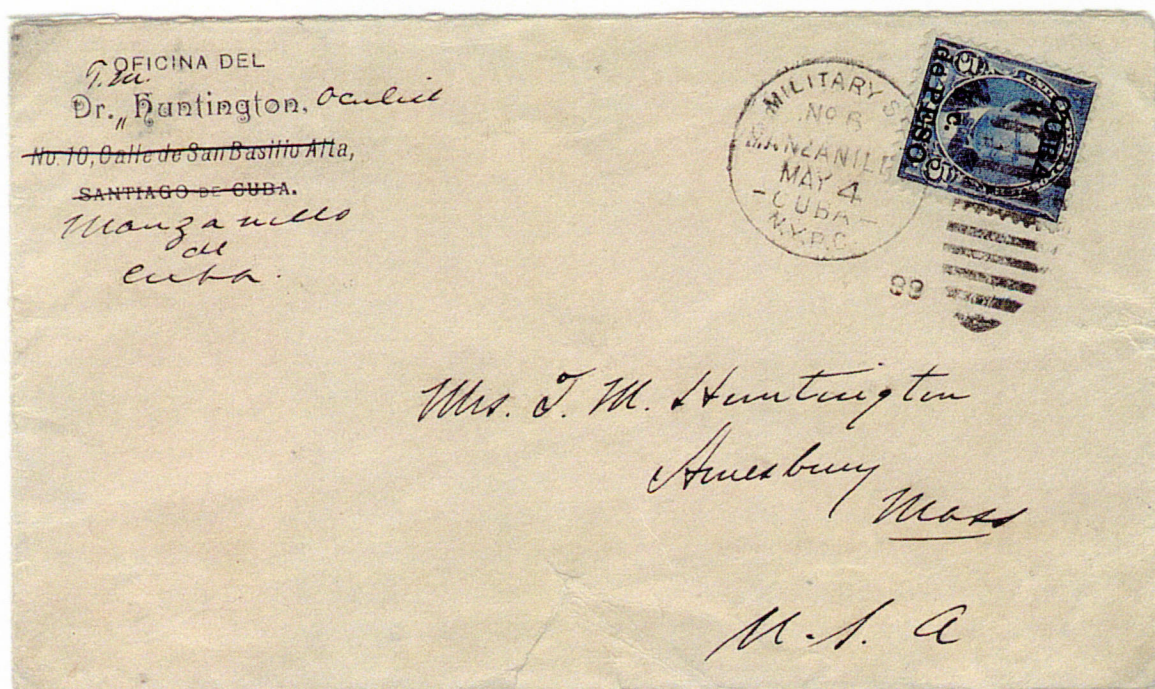 OFICINA DEL
T. M.
Dr. „ Huntington, Oculist
No. 10, Calle de San Basilio Alta,
SANTIAGO DE CUBA.
Manzanillo
de
Cuba.
MILITARY S
No 6
MANZANILL
MAY 4
-CUBA-
N.Y.P.O.
99
CUBA
5 c. 5
de PESO.
Mrs. T. M. Huntington
Amesbury
Mass
U. S. A